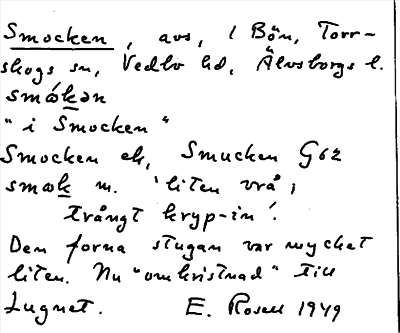 Smocken, avs, i Bön, Torr-
skogs sn, Vedbo hd, Älvsborgs l.
smǿkən
"i Smocken"
Smocken ek, Smucken G62
smøk m. 'liten vrå;
trångt kryp-in'.
Den forna stugan var mycket
liten. Nu "omkristnad" till
Lugnet. E. Rosell 1949